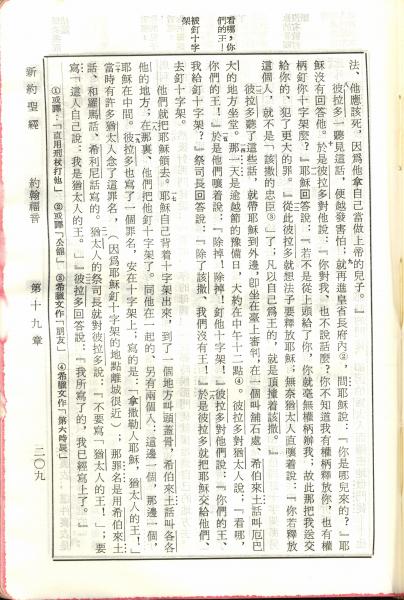 看哪，你
們的王！
被釘十字
架
法、他應該死、因爲他拿自己當做上帝的兒子。』
彼拉多一聽見這話，便越發害怕；就再進皇省長府內②，問耶穌說：『你是哪兒來的？』耶
穌沒有回答他。於是彼拉多對他說：『你對我、也不說話麼？你不知道我有權柄釋放你，也有權
柄釘你十字架麼？』耶穌回答說：『若不是從上頭給了你，你就毫無權柄辦我；故此那把我送交
給你的、犯了更大的罪。』從此彼拉多就想法子要釋放耶穌；無奈猶太人直嚷着說：『你若釋放
這個人，就不是「該撒的忠臣③」了；凡以自己爲王的，就是頂撞着該撒。』
彼拉多聽了這些話，就帶耶穌到外邊，卽坐在臺上審判，在一個叫鋪石處、希伯來土話叫厄巴
大的地方坐堂。那一天是逾越節的豫備日，大約在中午十二點④。彼拉多對猶太人說：『看哪，
你們的王！』於是他們嚷着說：『除掉！除掉！釘他十字架！』彼拉多對他們說：『你們的王，
我給釘十字架？』祭司長回答說：『除了該撒、我們沒有王！』於是彼拉多就把耶穌交給他們
去釘十字架。
他們就把耶穌領去。耶穌自己背着十字架出來，到了一個地方叫頭蓋骨，希伯來土話叫各各
他的地方；在那裏、他們把他釘十字架了。同他在一起的、另有兩個人，這邊一個，那邊一個，
耶穌在中間。彼拉多也寫了一個罪名，安在十字架上；寫的是：「拿撒勒人耶穌，猶太人的王！」
當時有許多猶太人念了這罪名，（因爲耶穌釘十字架的地點離城很近）；那罪名是用希伯來土
話、和羅馬話、希利尼話寫的。猶太人的祭司長就對彼拉多說：『不要寫「猶太人的王！」；要
寫「這人自己說：我是猶太人的王。」』彼拉多回答說：『我所寫了的，我已經寫上了。』
①或譯：「直用刑杖打他」　②或譯「公館」　③希臘文作「朋友」　④希臘文作「第六時辰」
新約聖經　約翰福音　第十九章　二〇九